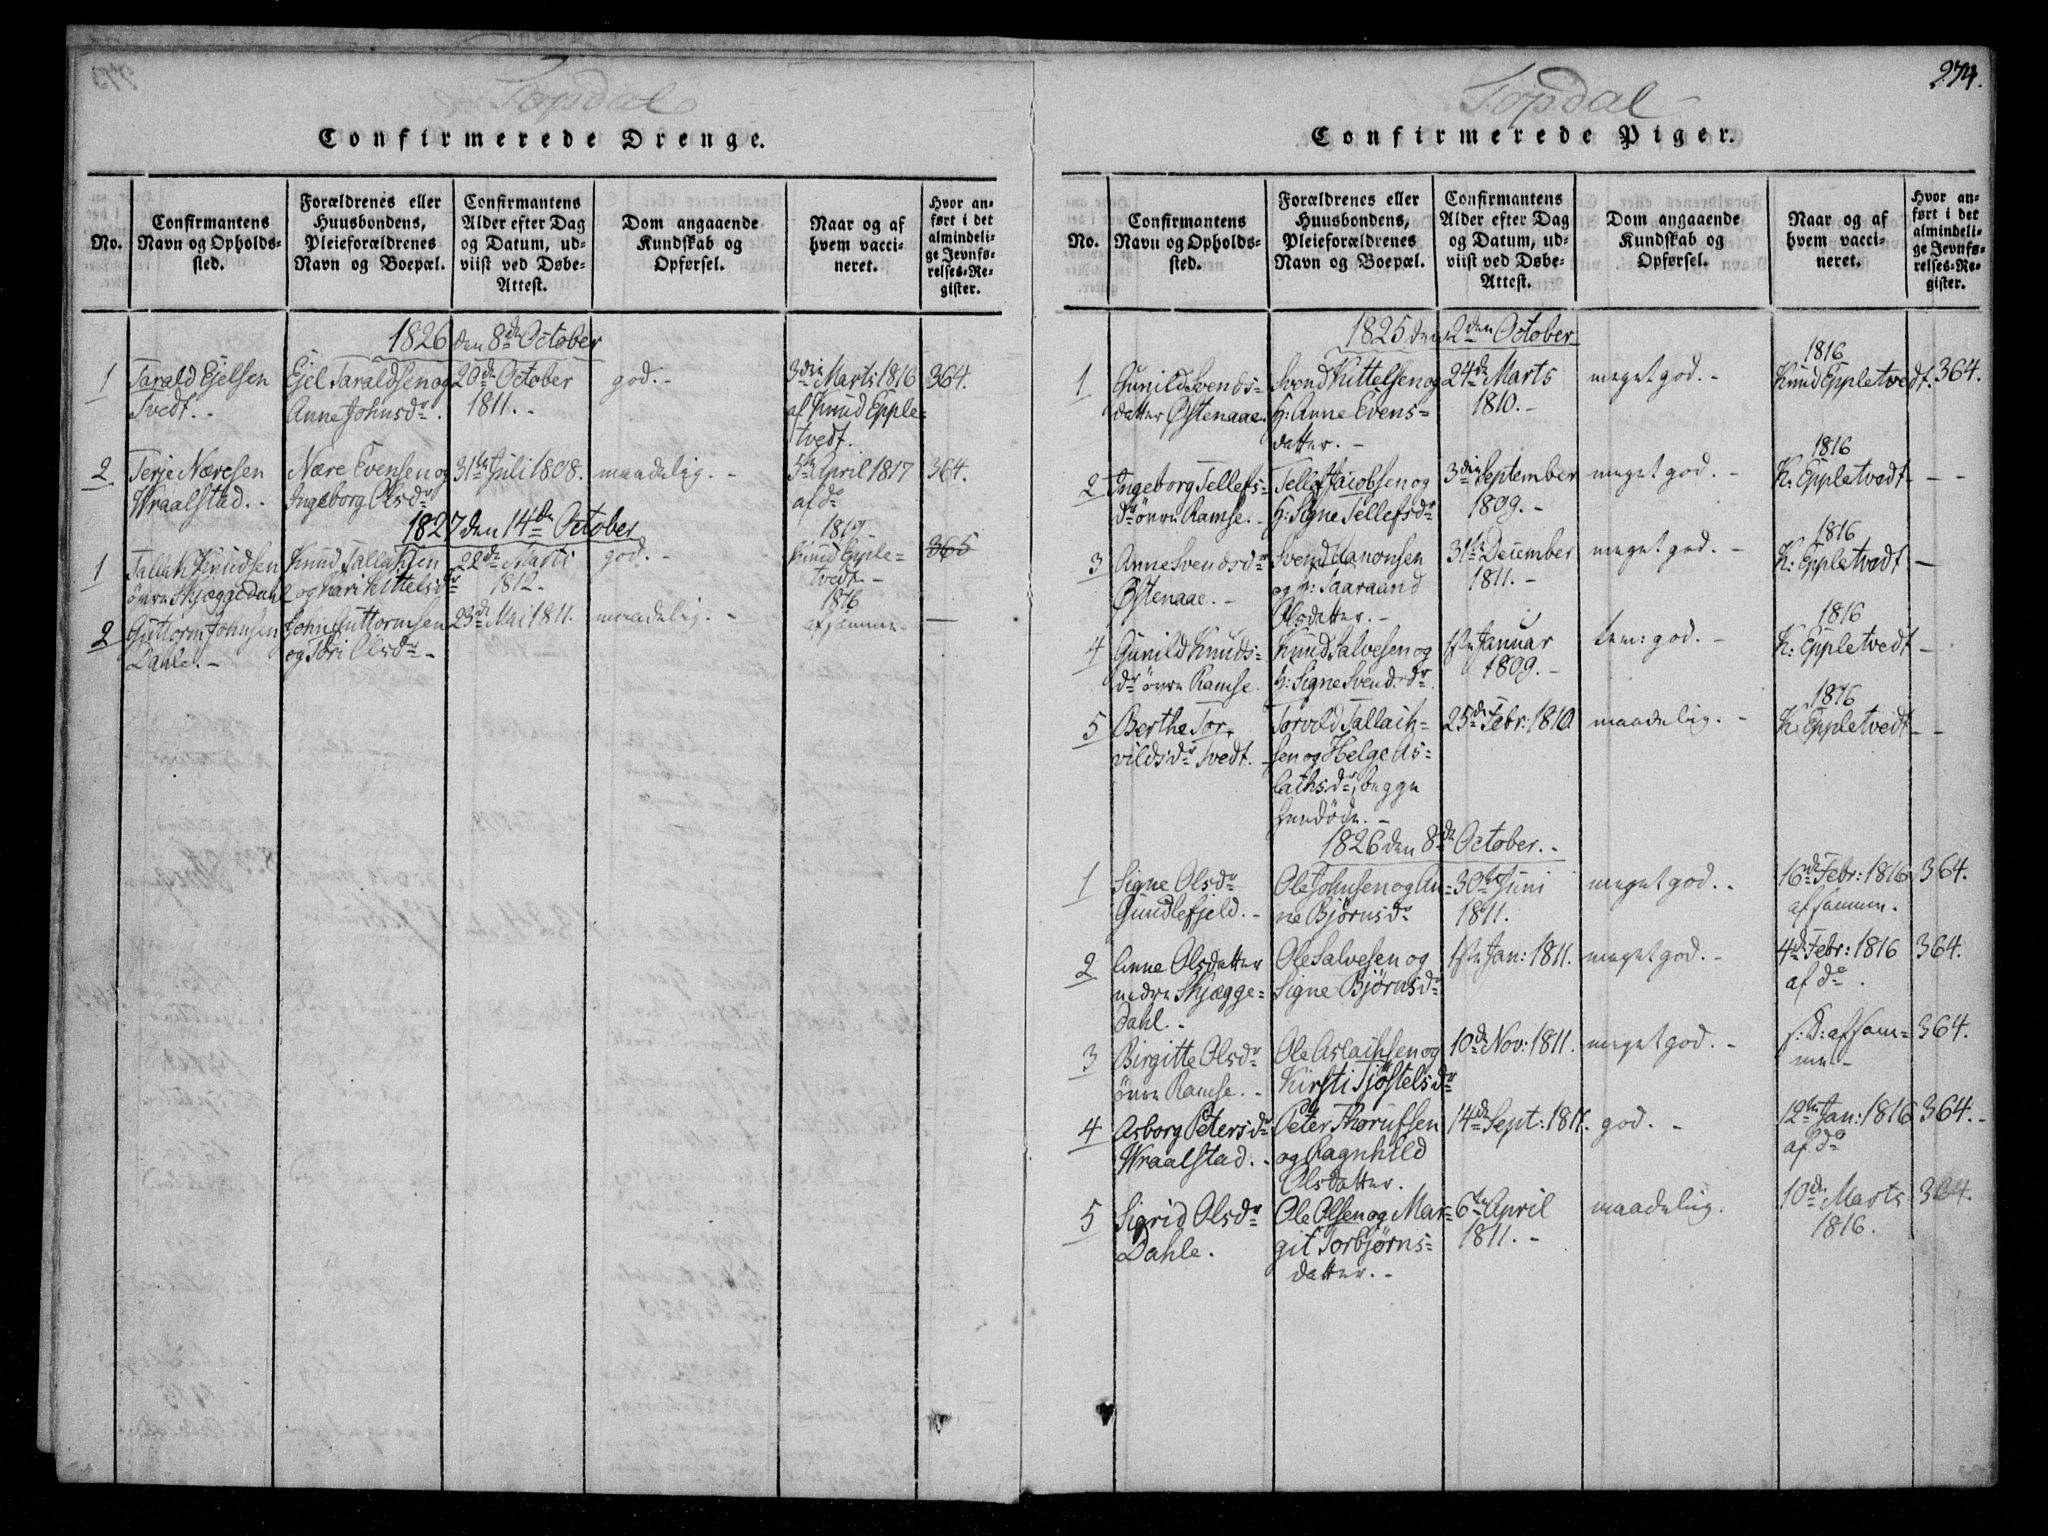 Topdal
Confirmerede Drenge.
No.
Confirmantens
Navn og Opholds-
sted.
Forældrenes eller
Huusbondens,
Pleieforældrenes
Navn og Boepæl.
Confirmantens
Alder efter Dag
og Datum, ud-
viist ved Døbe-
Attest.
Dom angaaende
Kundskab og
Opførsel.
Naar og af
hvem vacci-
neret.
Hvor an-
ført i det
almindeli-
ge Jevnfø-
relses-Re-
gister.
1826 den 8de October
1
Tarald Ejelsen
Tvedt. -
Ejel Taraldsen og
Anne Johnsdr.
20de October
1811. -
god. -
3die Marts 1816
af Knud Epple-
tvedt.
364.
2
Terje Næresen
Wraalstad. -
Nære Evensen og
Ingeborg Olsdr
31te Juli 1808.
maadelig. -
5te April 1817
af do
364.
1827 den 14de October
1
Tallak Knudsen
övre Skjæggedahl
Knud Tallaksen
og Kari Kittelsdr
22de Marts
1812. -
god. -
Knud Epple-
tvedt. -
365
2
Guttorm Johnsen
Dahle. -
John Guttormsen
og Töri Olsdr -
23de Mai 1811.
maadelig. -
1816
af samme. -
—
274.
Topdal
Confirmerede Piger.
No.
Confirmantens
Navn og Opholds-
sted.
Forældrenes eller
Huusbondens,
Pleieforældrenes
Navn og Boepæl.
Confirmantens
Alder efter Dag
og Datum, ud-
viist ved Døbe-
Attest.
Dom angaaende
Kundskab og
Opførsel.
Naar og af
hvem vacci-
neret.
Hvor an-
ført i det
almindeli-
ge Jevnfø-
relses-Re-
gister.
1825 den 2den October
1
Gunild Svends-
datter Østenaae.
Svend Kittelsen og
H: Anne Evens-
datter. -
24de Marts
1810. -
meget god. -
1816
Knud Eppletvedt.
364.
2
Ingeborg Tellefs-
dr övre Ramse. -
Tellef Jacobsen og
H: Signe Tellefsdr
3die September
1809. -
meget god. -
1816
K: Eppletvedt -
-
3
Anne Svendsdr
Østenaae. -
Svend Hanonsen
og H: Taaraand
Olsdatter. -
31te December
1811. -
meget god. -
1816
K: Eppletvedt -
4
Gunild Knuds-
dr övre Ramse.
Knud Salvesen og
H: Signe Svendsdr.
1ste Januar
1809. -
tem: god. -
1816
K: Eppletvedt -
5
Berthe Tor-
vildsdr Tvedt. -
Torvild Tallach-
sen og Helge As-
lachsdr, begge
hendöde. -
25de Febr: 1810
maadelig. -
1816
K: Eppletvedt -
-
1826 den 8de October. -
1
Signe Olsdr
Gundlefjeld. -
Ole Johnsen og An-
ne Björnsdr
30te Juni
1811.
meget god. -
16de Febr: 1816
af samme.
364.
2
Anne Olsdatter
nedre Skjægge-
dahl. -
Ole Salvesen og
Signe Björnsdr
1ste Jan: 1811.
meget god. -
4de Febr: 1816
af do.
364.
3
Birgitte Olsdr
övre Ramse. -
Ole Aslachsen og
Kirsti Tjöstelsdr
10de Nov: 1811.
meget god. -
s: D: af sam-
me -
364.
4
Asborg Petersdr
Wraalstad. -
Peter Thorufsen
og Ragnhild
Olsdatter.
14de Sept: 1811.
god. -
12te Jan: 1816
af do
364. -
5
Sigrid Olsdr
Dahle.
Ole Olsen og Mar-
git Torbjörns-
datter. -
6te April
1811. -
maadelig.
10de Marts
1816.
364.